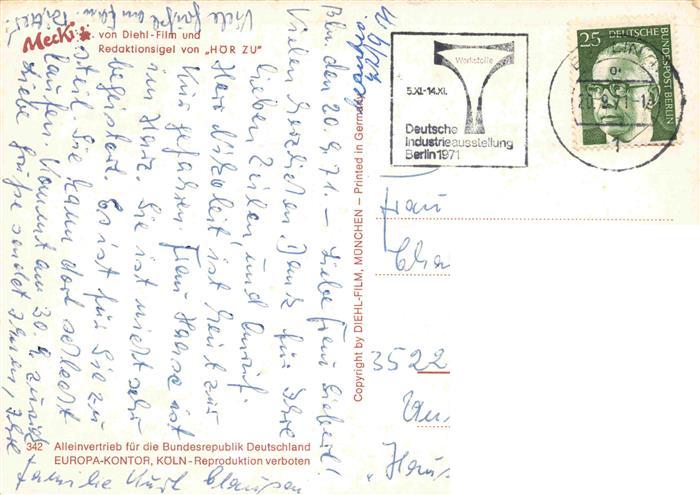 Viele Grüße an Fam.
Mecki
von Diehl-Film und
Redaktionsigel von „HÖR ZU"
Bln. den 20.9.71. – Liebe Frau
Vielen herzlichen Dank für Ihre
lieben Zeilen und Anruf.
Herr ist heut zur
Kur gefahren. Frau Haase ist
im Harz. Sie ist nicht sehr
begeistert. Es ist für Sie zu
steil. Sie kann dort schlecht
laufen. Kommt am 30.9. zurück
Liebe Grüße sendet Ihnen, Ihre
Familie Kurt Clausen
342 Alleinvertrieb für die Bundesrepublik Deutschland
EUROPA-KONTOR, KÖLN - Reproduktion verboten
Copyright by DIEHL-FILM, MÜNCHEN – Printed in Germany
Werkstoffe
5.XI.-14.XI.
Deutsche
Industrieausstellung
Berlin 1971
25 DEUTSCHE
BUNDESPOST BERLIN
1
Frau
3522
„Haus